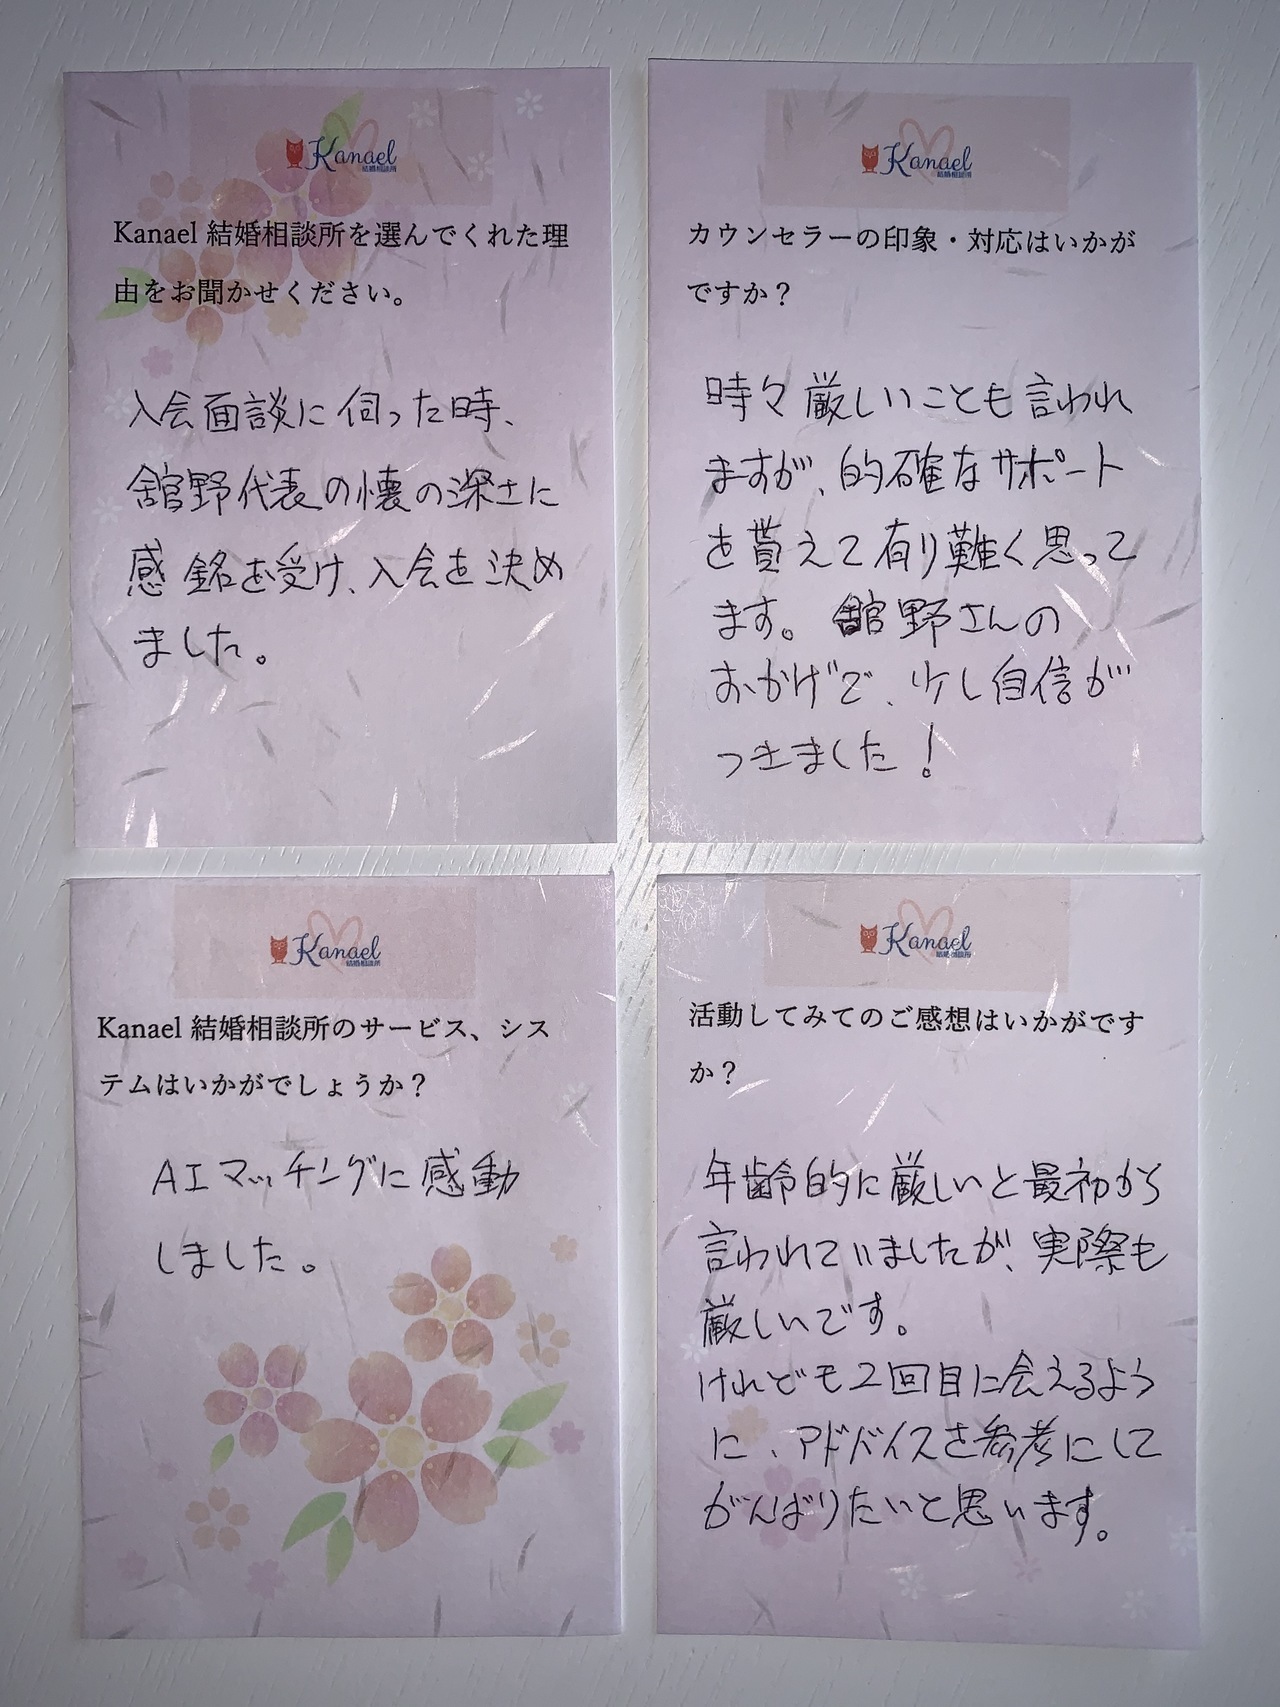 Kanael
結婚相談所
Kanael 結婚相談所を選んでくれた理
由をお聞かせください。
入会面談に伺った時、
舘野代表の懐の深さに
感銘を受け、入会を決め
ました。
Kanael
結婚相談所
カウンセラーの印象・対応はいかが
ですか？
時々厳しいことも言われ
ますが、的確なサポート
を貰えて有り難く思って
ます。舘野さんの
おかげで、少し自信が
つきました！
Kanael
結婚相談所
Kanael 結婚相談所のサービス、シス
テムはいかがでしょうか？
AIマッチングに感動
しました。
Kanael
結婚相談所
活動してみてのご感想はいかがです
か？
年齢的に厳しいと最初から
言われていましたが、実際も
厳しいです。
けれども2回目に会えるよう
に、アドバイスを参考にして
がんばりたいと思います。